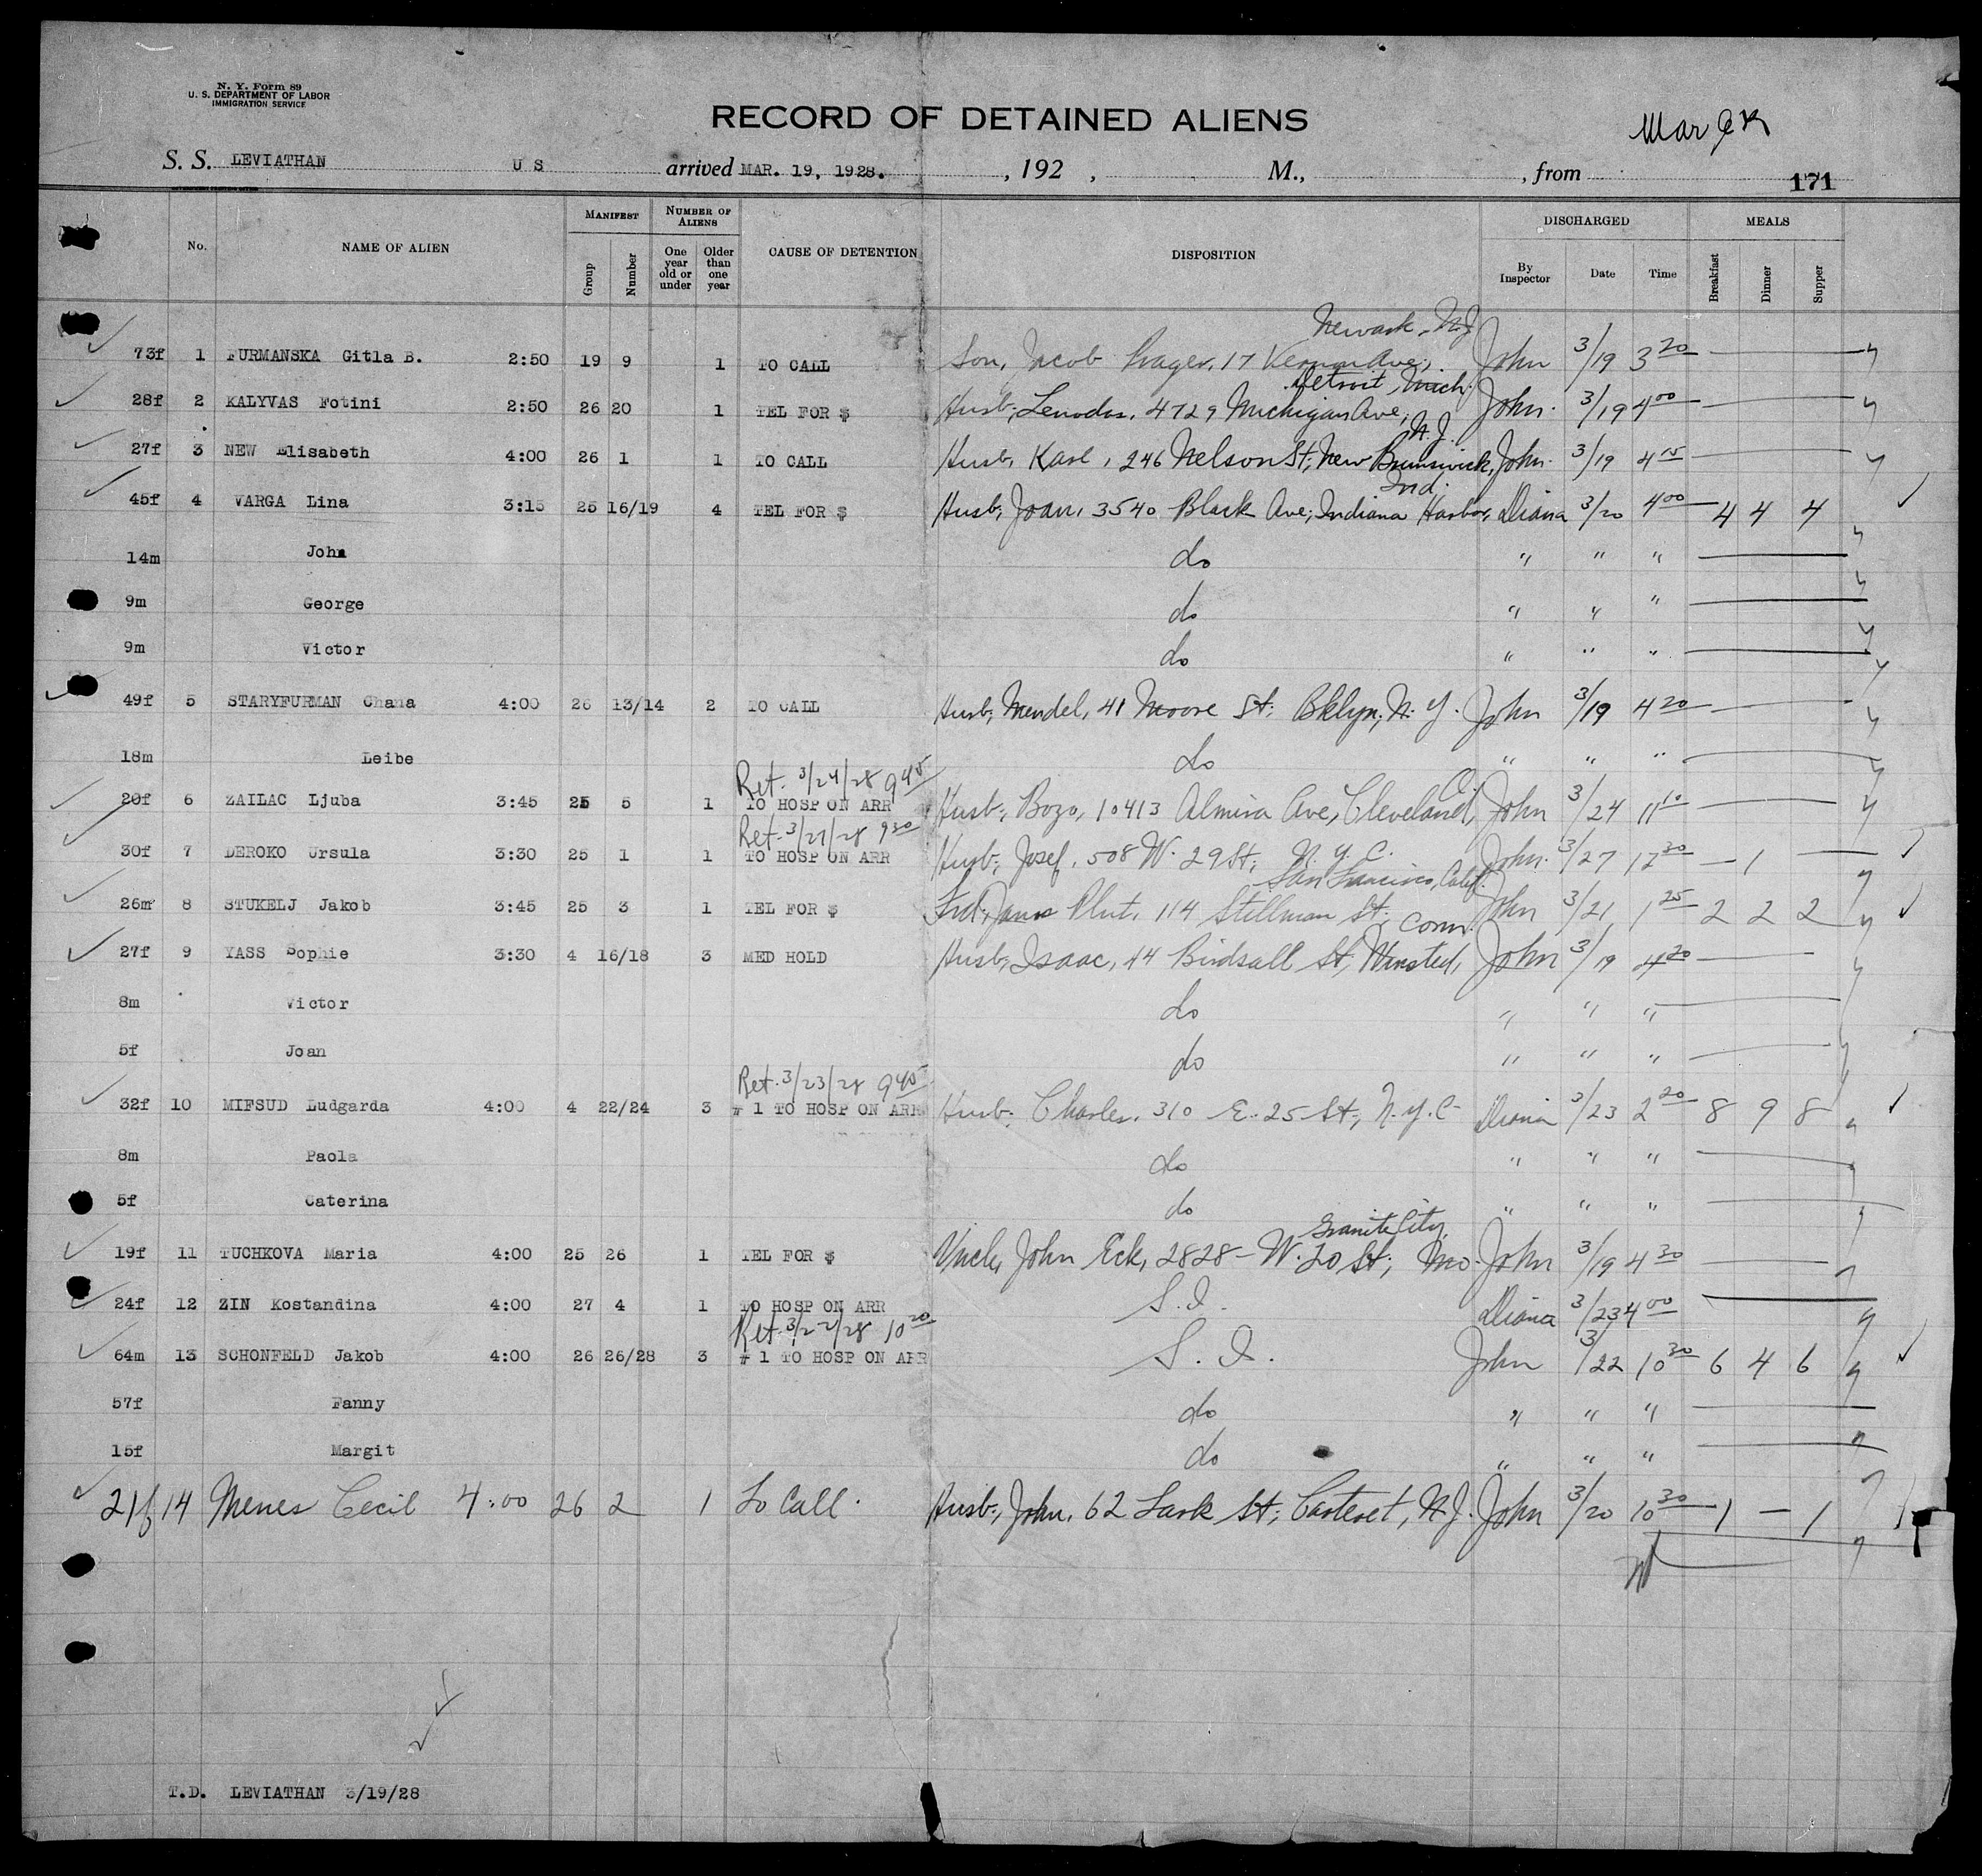 N. Y. Form 89
U. S. DEPARTMENT OF LABOR
IMMIGRATION SERVICE
RECORD OF DETAINED ALIENS
S. S. LEVIATHAN U S arrived MAR. 19, 1928. , 192 , M., , from 171
No. NAME OF ALIEN MANIFEST Group Number NUMBER OF ALIENS One year old or under Older than one year CAUSE OF DETENTION DISPOSITION DISCHARGED By Inspector Date Time MEALS Breakfast Dinner Supper
Newark, N.J
73f 1 FURMANSKA Gitla B. 2:50 19 9 1 TO CALL Son, Jacob Prager, 17 Vernon Ave, John 3/19 3 20
Detroit, Mich.
28f 2 KALYVAS Fotini 2:50 26 20 1 TEL FOR $ Husb, 4729 Michigan Ave, John. 3/19 4 00
N.J.
27f 3 NEW Elisabeth 4:00 26 1 1 TO CALL Husb, Karl, 246 Nelson St; New Brunswick, John. 3/19 4 15
Ind.
45f 4 VARGA Lina 3:15 25 16/19 4 TEL FOR $ Husb, Joan, 3540 Block Ave; Indiana Harbor, Diana 3/20 4 00 4 4 4
14m John do " " "
9m George do " " "
9m Victor do " " "
49f 5 STARYFURMAN Chana 4:00 26 13/14 2 TO CALL Husb, Mendel, 41 Moore St; Bklyn, N.Y. John 3/19 4 20
18m Leibe do " " "
Ret. 3/24/28 9 45
20f 6 ZAILAC Ljuba 3:45 25 5 1 TO HOSP ON ARR Husb, Bozo, 10413 Almira Ave, Cleveland, O. John 3/24 11 10
Ret. 3/27/28 9 30
30f 7 DEROKO Ursula 3:30 25 1 1 TO HOSP ON ARR Husb, Josef, 508 W. 29 St; N.Y.C. John. 3/27 12 30 — 1 —
San Francisco, Calif.
26m 8 STUKELJ Jakob 3:45 25 3 1 TEL FOR $ Frd, Plut, 114 Stillman St; John 3/21 1 25 2 2 2
Conn.
27f 9 YASS Sophie 3:30 4 16/18 3 MED HOLD Husb, Isaac, 44 Birdsall St, Winsted, John 3/19 4 20
8m Victor do " " "
5f Joan do " " "
Ret. 3/23/28 9 45
32f 10 MIFSUD Ludgarda 4:00 4 22/24 3 # 1 TO HOSP ON ARR Husb, Charles, 310 E. 25 St, N.Y.C Diana 3/23 2 20 8 9 8
8m Paola do " " "
5f Caterina do " " "
Granite City,
19f 11 TUCHKOVA Maria 4:00 25 26 1 TEL FOR $ Uncle, John Eck, 2828 - W. 20 St; Mo. John 3/19 4 30
24f 12 ZIN Kostandina 4:00 27 4 1 TO HOSP ON ARR S.I. Diana 3/23 4 00
Ret. 3/22/28 10 20
64m 13 SCHONFELD Jakob 4:00 26 26/28 3 # 1 TO HOSP ON ARR S.I. John 3/22 10 30 6 4 6
57f Fanny do " " "
15f Margit do " " "
21f 14 Menes Cecil 4:00 26 2 1 To Call. Husb, John, 62 Lark St; Carteret, N.J. John 3/20 10 30 1 — 1
T.D. LEVIATHAN 3/19/28